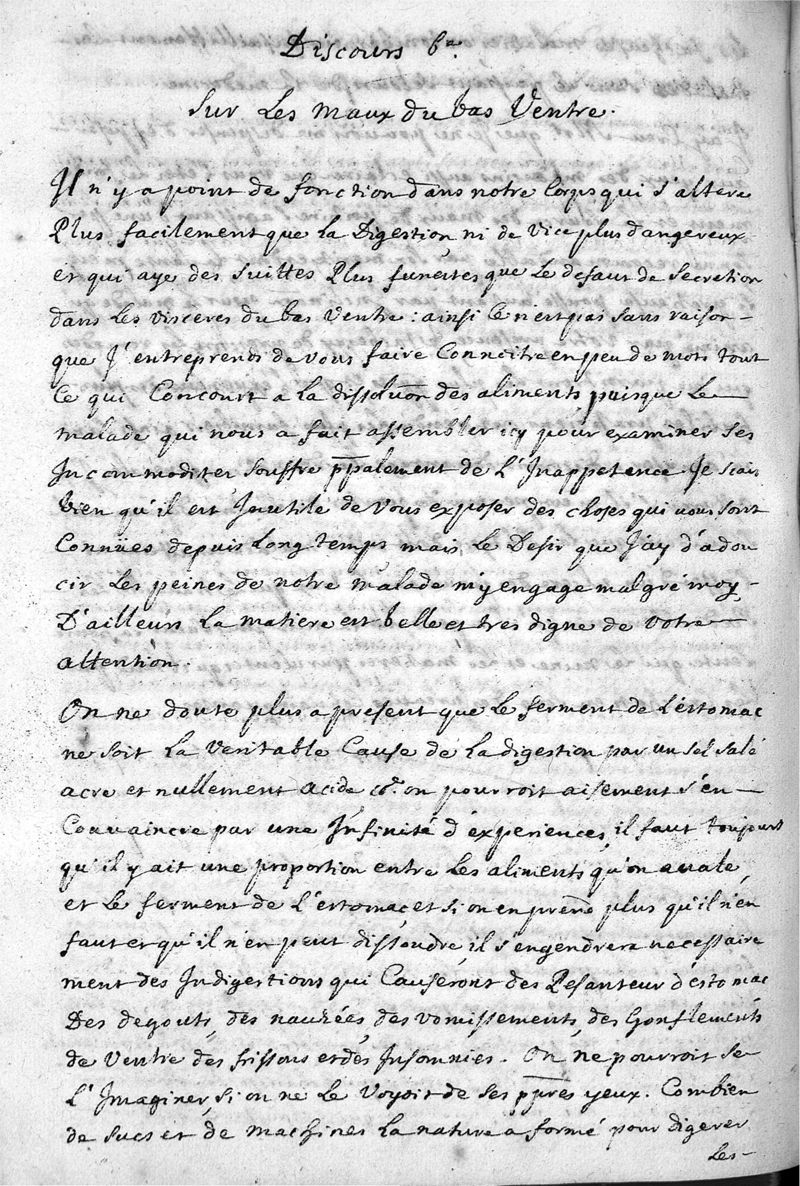 Discours 6e.
Sur Les Maux du bas Ventre.
Il n'y a point de fonction dans notre Corps qui s'altere
Plus facilement que la Digestion, ni de Vice plus dangereux
et qui aye des suittes Plus funestes que Le defaut de Secretion
dans Les visceres du bas Ventre: ainsi Ce n'est pas sans raison
que J'entreprends de vous faire Connoitre en peu de mots tout
Ce qui Concourt a la dissoluõn des aliments, puisque Le
malade qui nous a fait assembler icy pour examiner ses
Incommoditez souffre pp̃alement de L'Inappetence. Je scais
bien qu'il est Inutile de Vous exposer des choses qui vous sont
Connües depuis Long temps mais Le Desir que J'ay d'adou
cir Les peines de notre malade m'y engage malgré moy,
D'ailleurs La matiere est belle et tres digne de Votre
attention.
On ne doute plus a present que Le ferment de L'estomac
ne soit La Veritable Cause de La digestion par un sel salé
acre et nullement acide, co͂e on pourroit aisement s'en
Convaincre par une Infinité d'experiences, il faut toujours
qu'il y ait une proportion entre Les aliments qu'on avale,
et Le ferment de L'estomac, et si on en prenẽ plus qu'il n'en
faut et qu'il n'en peut dissoudre, il s'engendrera necessaire
ment des Indigestions qui Causeront des Pesanteur d'estomac
Des degouts, des nauzées, des vomissements, des Gonflements
de Ventre des frissons et des Insomnies. On ne pourroit se
L'Imaginer, si on ne Le Voyoit de ses pp̃res yeux. Combien
de sucs et de machines La nature a formé pour digerer
Les